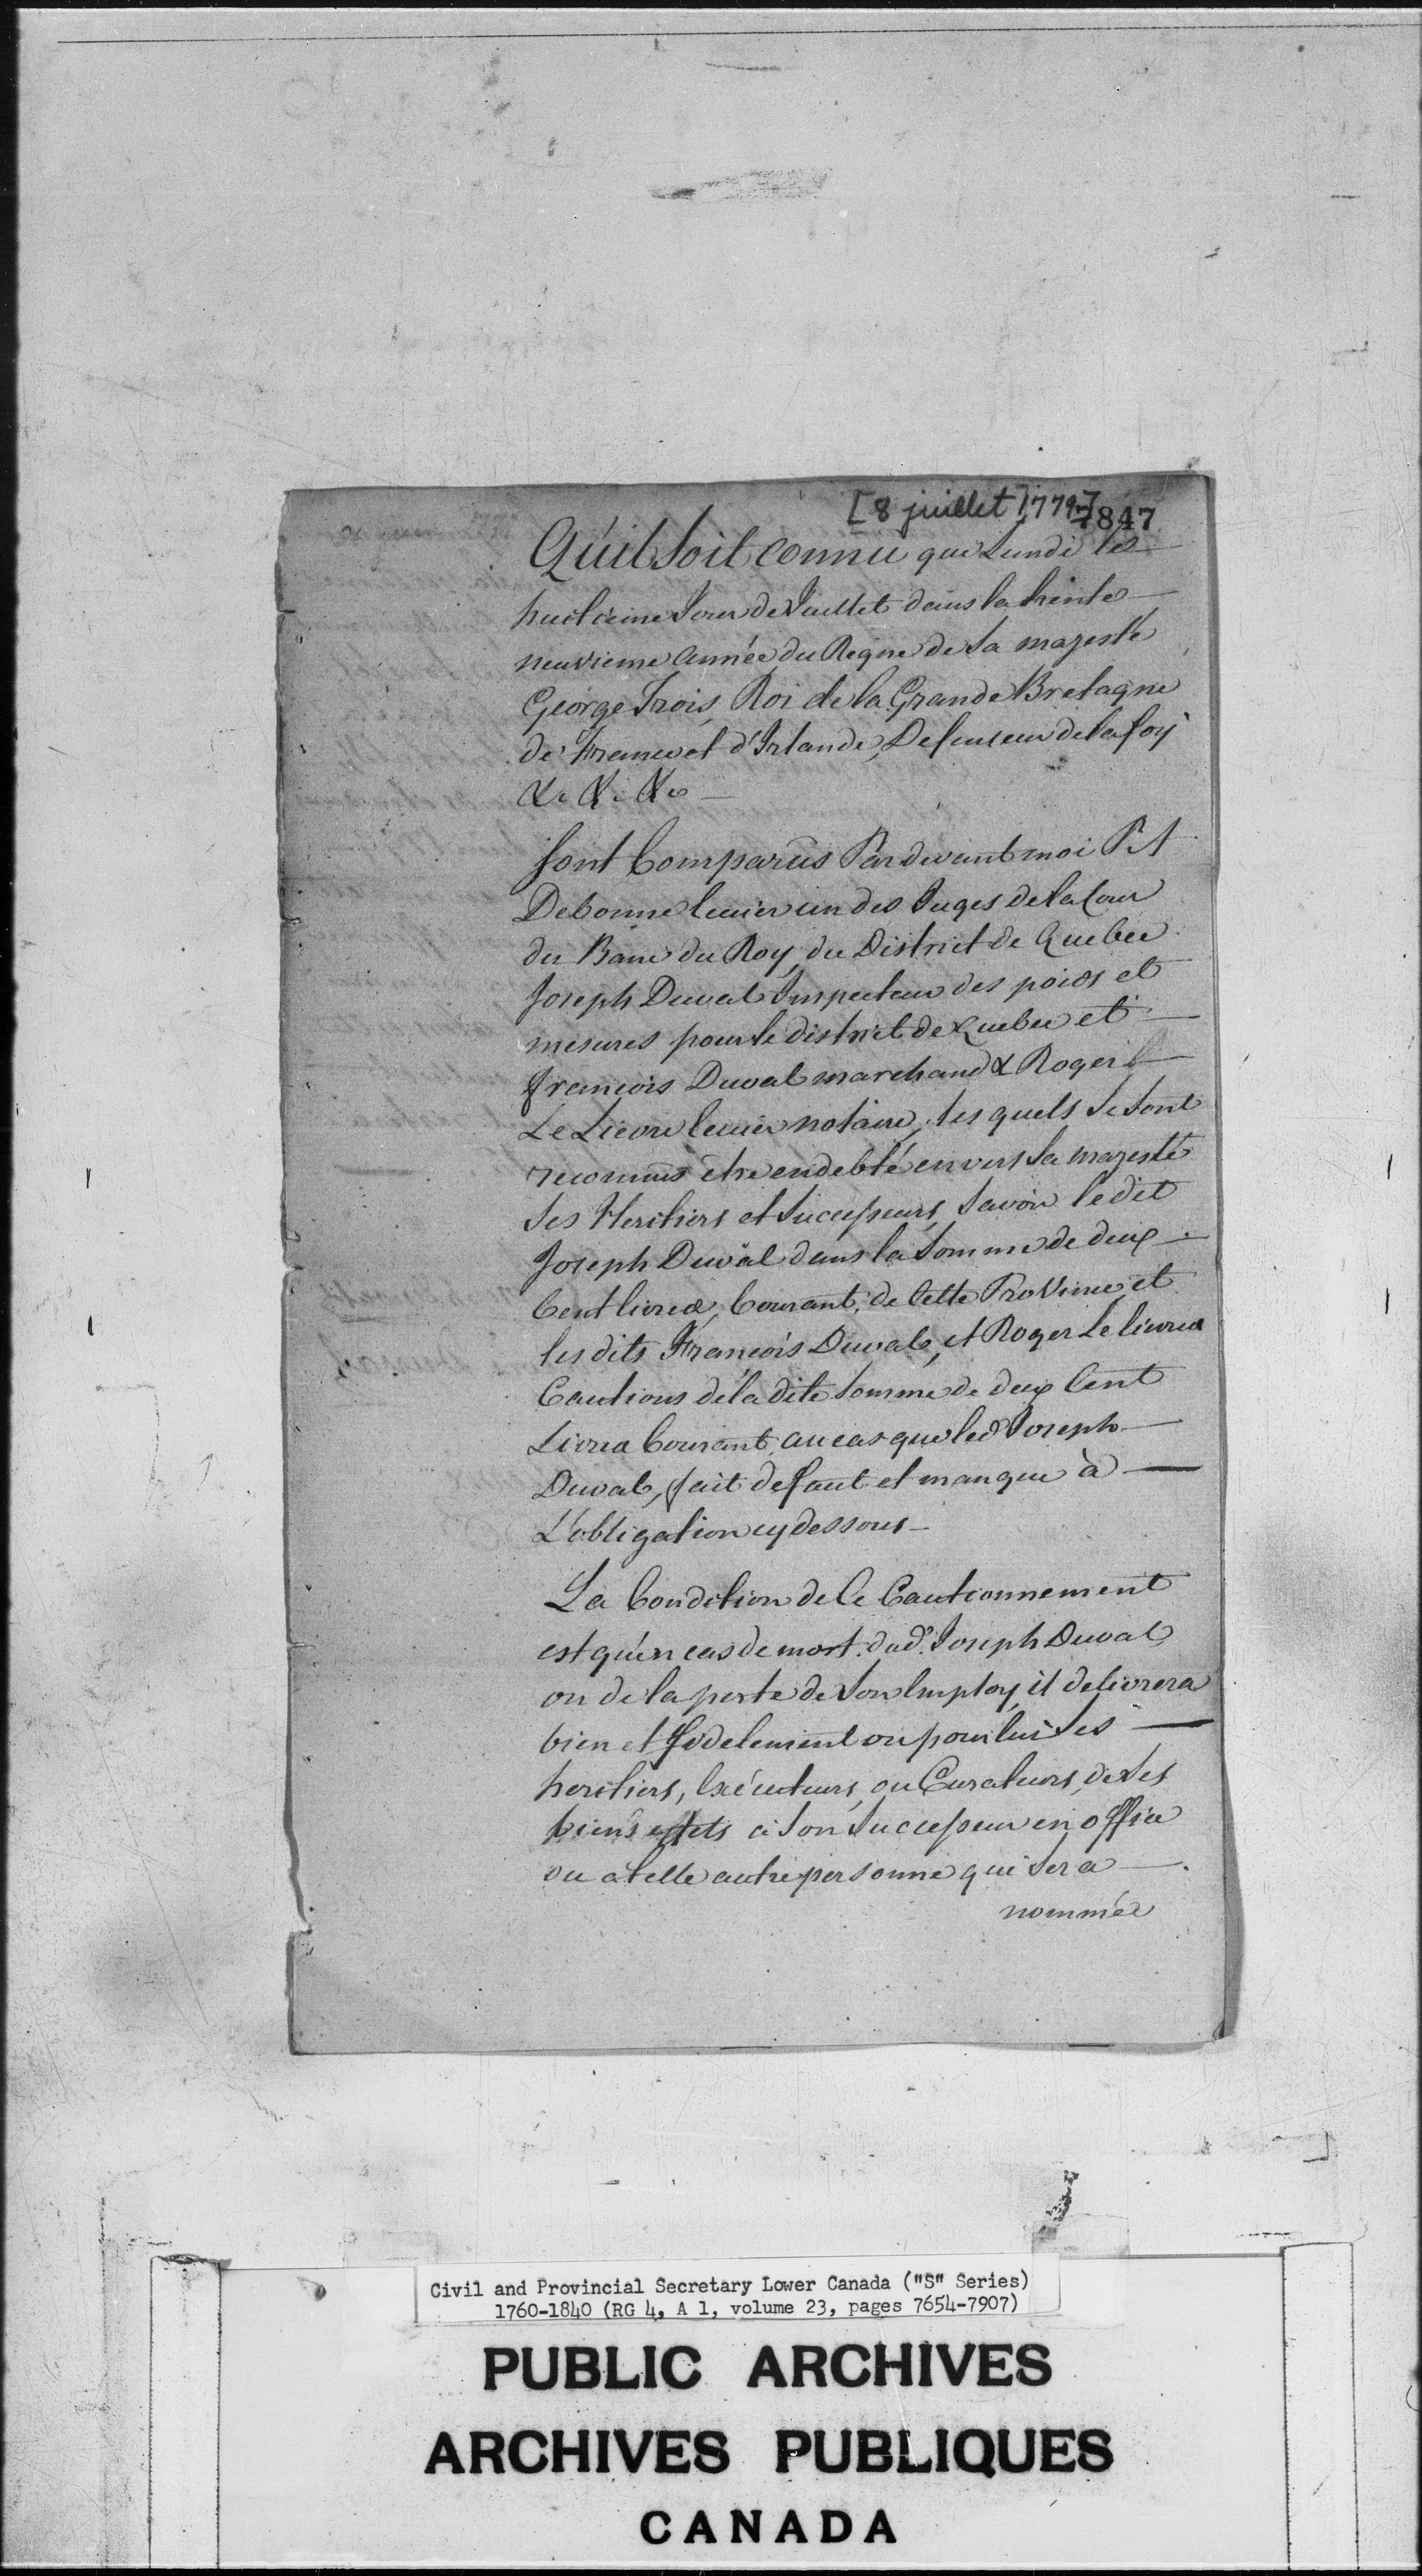 [8 juillet 1779]
7847
Qu'il Soit connu que Lundi le
huitieme Jour de Juillet dans la trente
neuvieme année du Regne de Sa majesté
George Trois, Roi de la Grande Bretagne
de France et d'Irlande, Defenseur de la foy
&c &c &c
Sont Comparûs Pardevant moi P. A
Debonne Ecuier un des Juges de la Cour
du Banc du Roy, du District de Quebec
Joseph Duval Inspecteur des poids et
mesures pour le district de Quebec et
francois Duval marchand & Roger
Le Lievre Ecuier notaire, les quels Se Sont
reconnus être endebté envers Sa majesté
Ses Heritiers et Successeurs, Savoir le dit
Joseph Duval dans la Somme de deux
Cent livres, Courant, de Cette Province et
les dits François Duval, et Roger Le lievre
Cautions de la dite Somme de deux Cent
Livres Courant, au cas que led Joseph
Duval, fait defaut et manque à
L'obligation cy dessous
La Condition de Ce Cautionnement
est qu'en cas de mort dud. Joseph Duval
ou de la perte de Son Employ, il delivrera
bien et fidelement ou pour lui Ses
heritiers, Exécuteurs, ou Curateurs, de Ses
biens effets à Son Successeur en office
ou a telle autre personne qui Sera
nommée
Civil and Provincial Secretary Lower Canada ("S" Series)
1760-1840 (RG 4, A 1, volume 23, pages 7654-7907)
PUBLIC ARCHIVES
ARCHIVES PUBLIQUES
CANADA